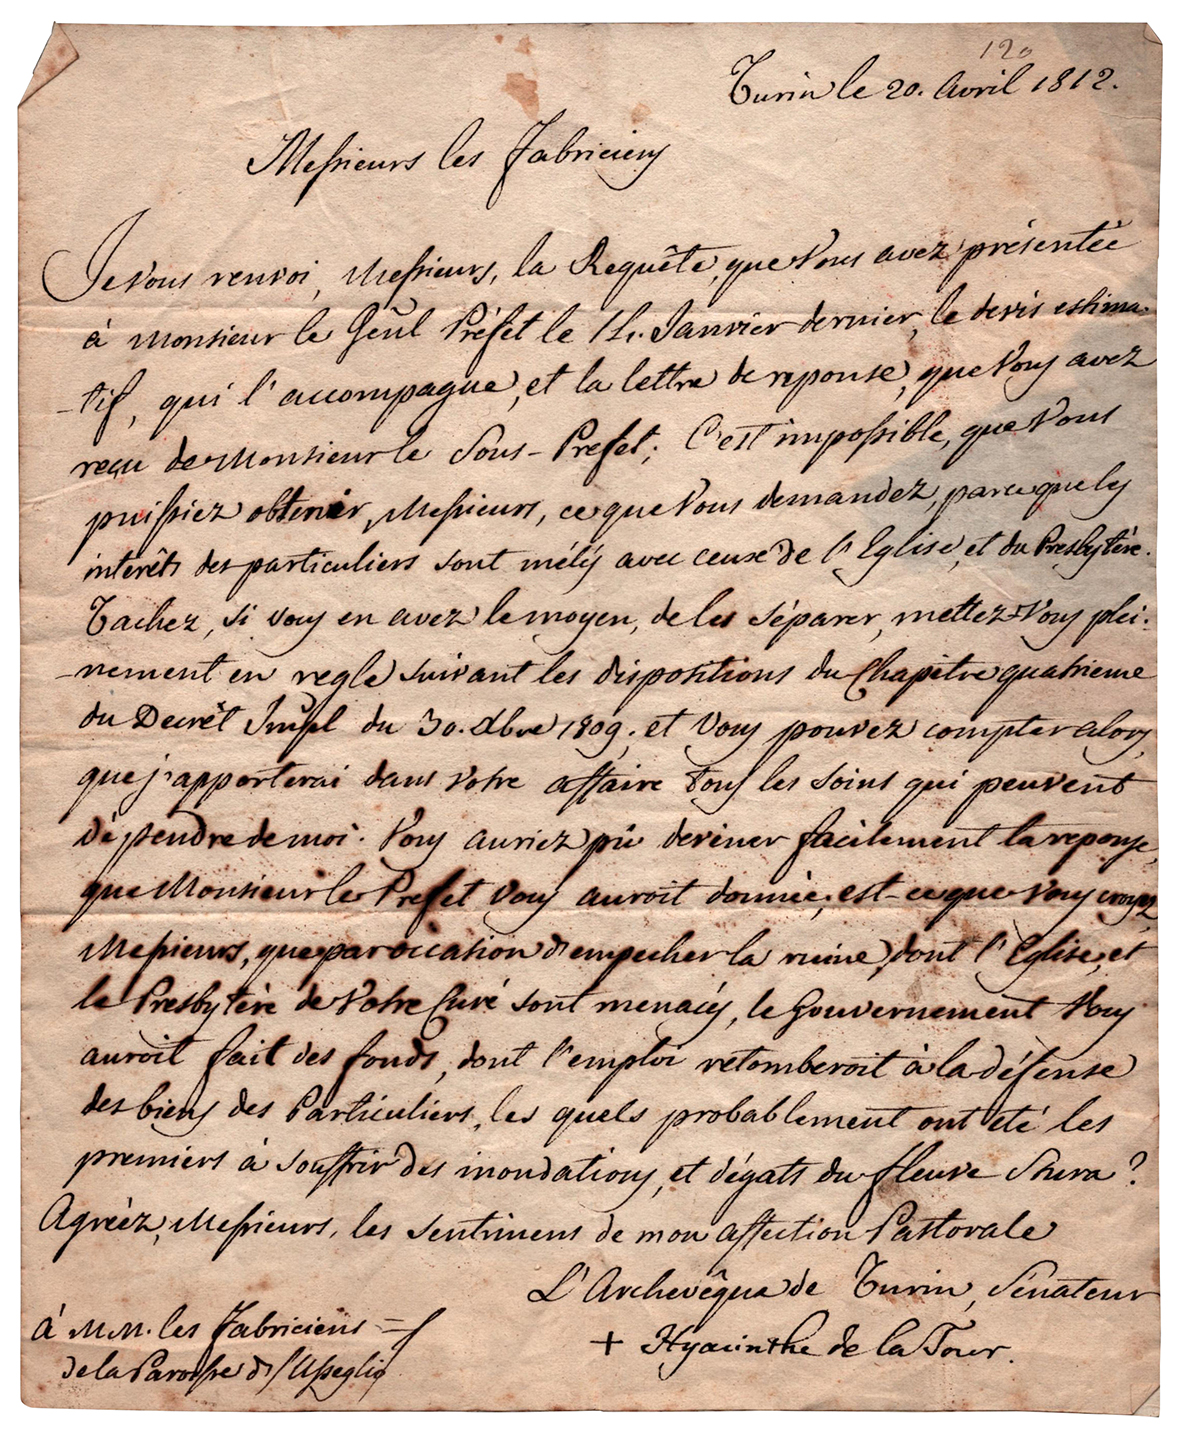 120
Turin le 20. Avril 1812.
Messieurs les Fabriciens
Je Vous renvoi, Messieurs, la Requête, que Vous avez présentée
à Monsieur le Gen̄l Préfet le 14. Janvier dernier, le devis estima-
-tif, qui l'accompagne, et la lettre de reponse, que Vous avez
reçu de Monsieur le Sous-Prefet; C'est impossible, que Vous
puissiez obtenir, Messieurs, ce que Vous demandez, parce que les
intérêts des particuliers sont mélés avec ceux de l'Eglise, et du Presbytère.
Tachez, si vous en avez le moyen, de les séparer, mettez-Vous plei-
-nement en regle suivant les dispositions du Chapitre quatrieme
du Decrêt Imp̄l du 30. Xbre 1809. et Vous pouvez compter alors,
que j'apporterai dans votre affaire tous les soins qui peuvent
dépendre de moi. Vous auriez pû deviner facilement la reponse,
que Monsieur le Prefet Vous auroit donnée; est-ce que Vous croyez,
Messieurs, que par occasion d'empecher la ruine, dont l'Eglise, et
le Presbytère de Votre Curé sont menacés, le Gouvernement Vous
auroit fait des fonds, dont l'emploi retomberoit à la défense
des biens des Particuliers, les quels probablement ont été les
premiers à souffrir des inondations, et dégats du fleuve Stura?
Agréez, Messieurs, les sentimens de mon affection Pastorale
L'Archevêque de Turin, Sénateur
+ Hyacinthe de la Tour.
à MM. les Fabriciens =
de la Paroisse d'Usseglio